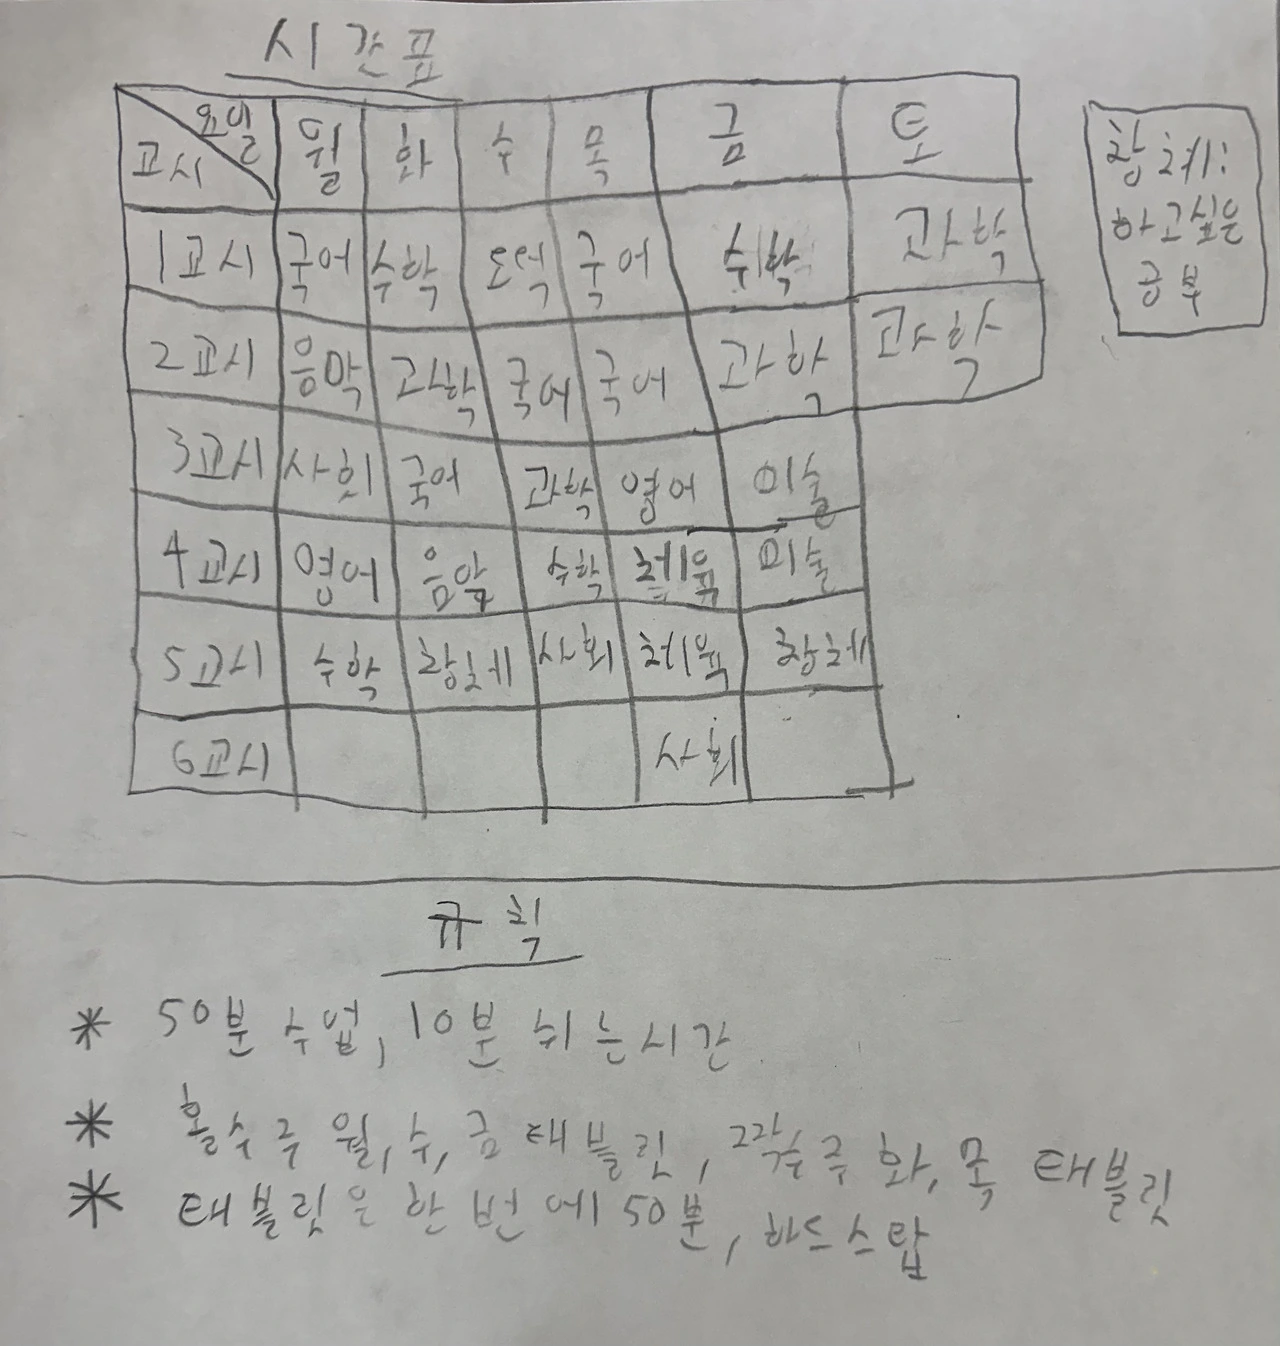 시간표
요일
교시 월 화 수 목 금 토
1교시 국어 수학 도덕 국어 수학 과학
2교시 음악 과학 국어 국어 과학 과학
3교시 사회 국어 과학 영어 미술
4교시 영어 음악 수학 체육 미술
5교시 수학 창체 사회 체육 창체
6교시 사회
창체:
하고싶은
공부
규칙
* 50분 수업, 10분 쉬는시간
* 홀수주 월, 수, 금 태블릿, 짝수주 화, 목 태블릿
* 태블릿은 한 번에 50분, 하드스탑